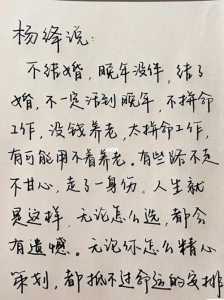 杨绛说:
不结婚,晚年没伴,结了
婚,不一定活到晚年,不拼命
工作,没钱养老,太拼命工作,
有可能用不着养老。有些路不走
不甘心,走了一身伤。人生就
是这样,无论怎么选,都会
有遗憾。无论你怎么精心
策划,都抵不过命运的安排